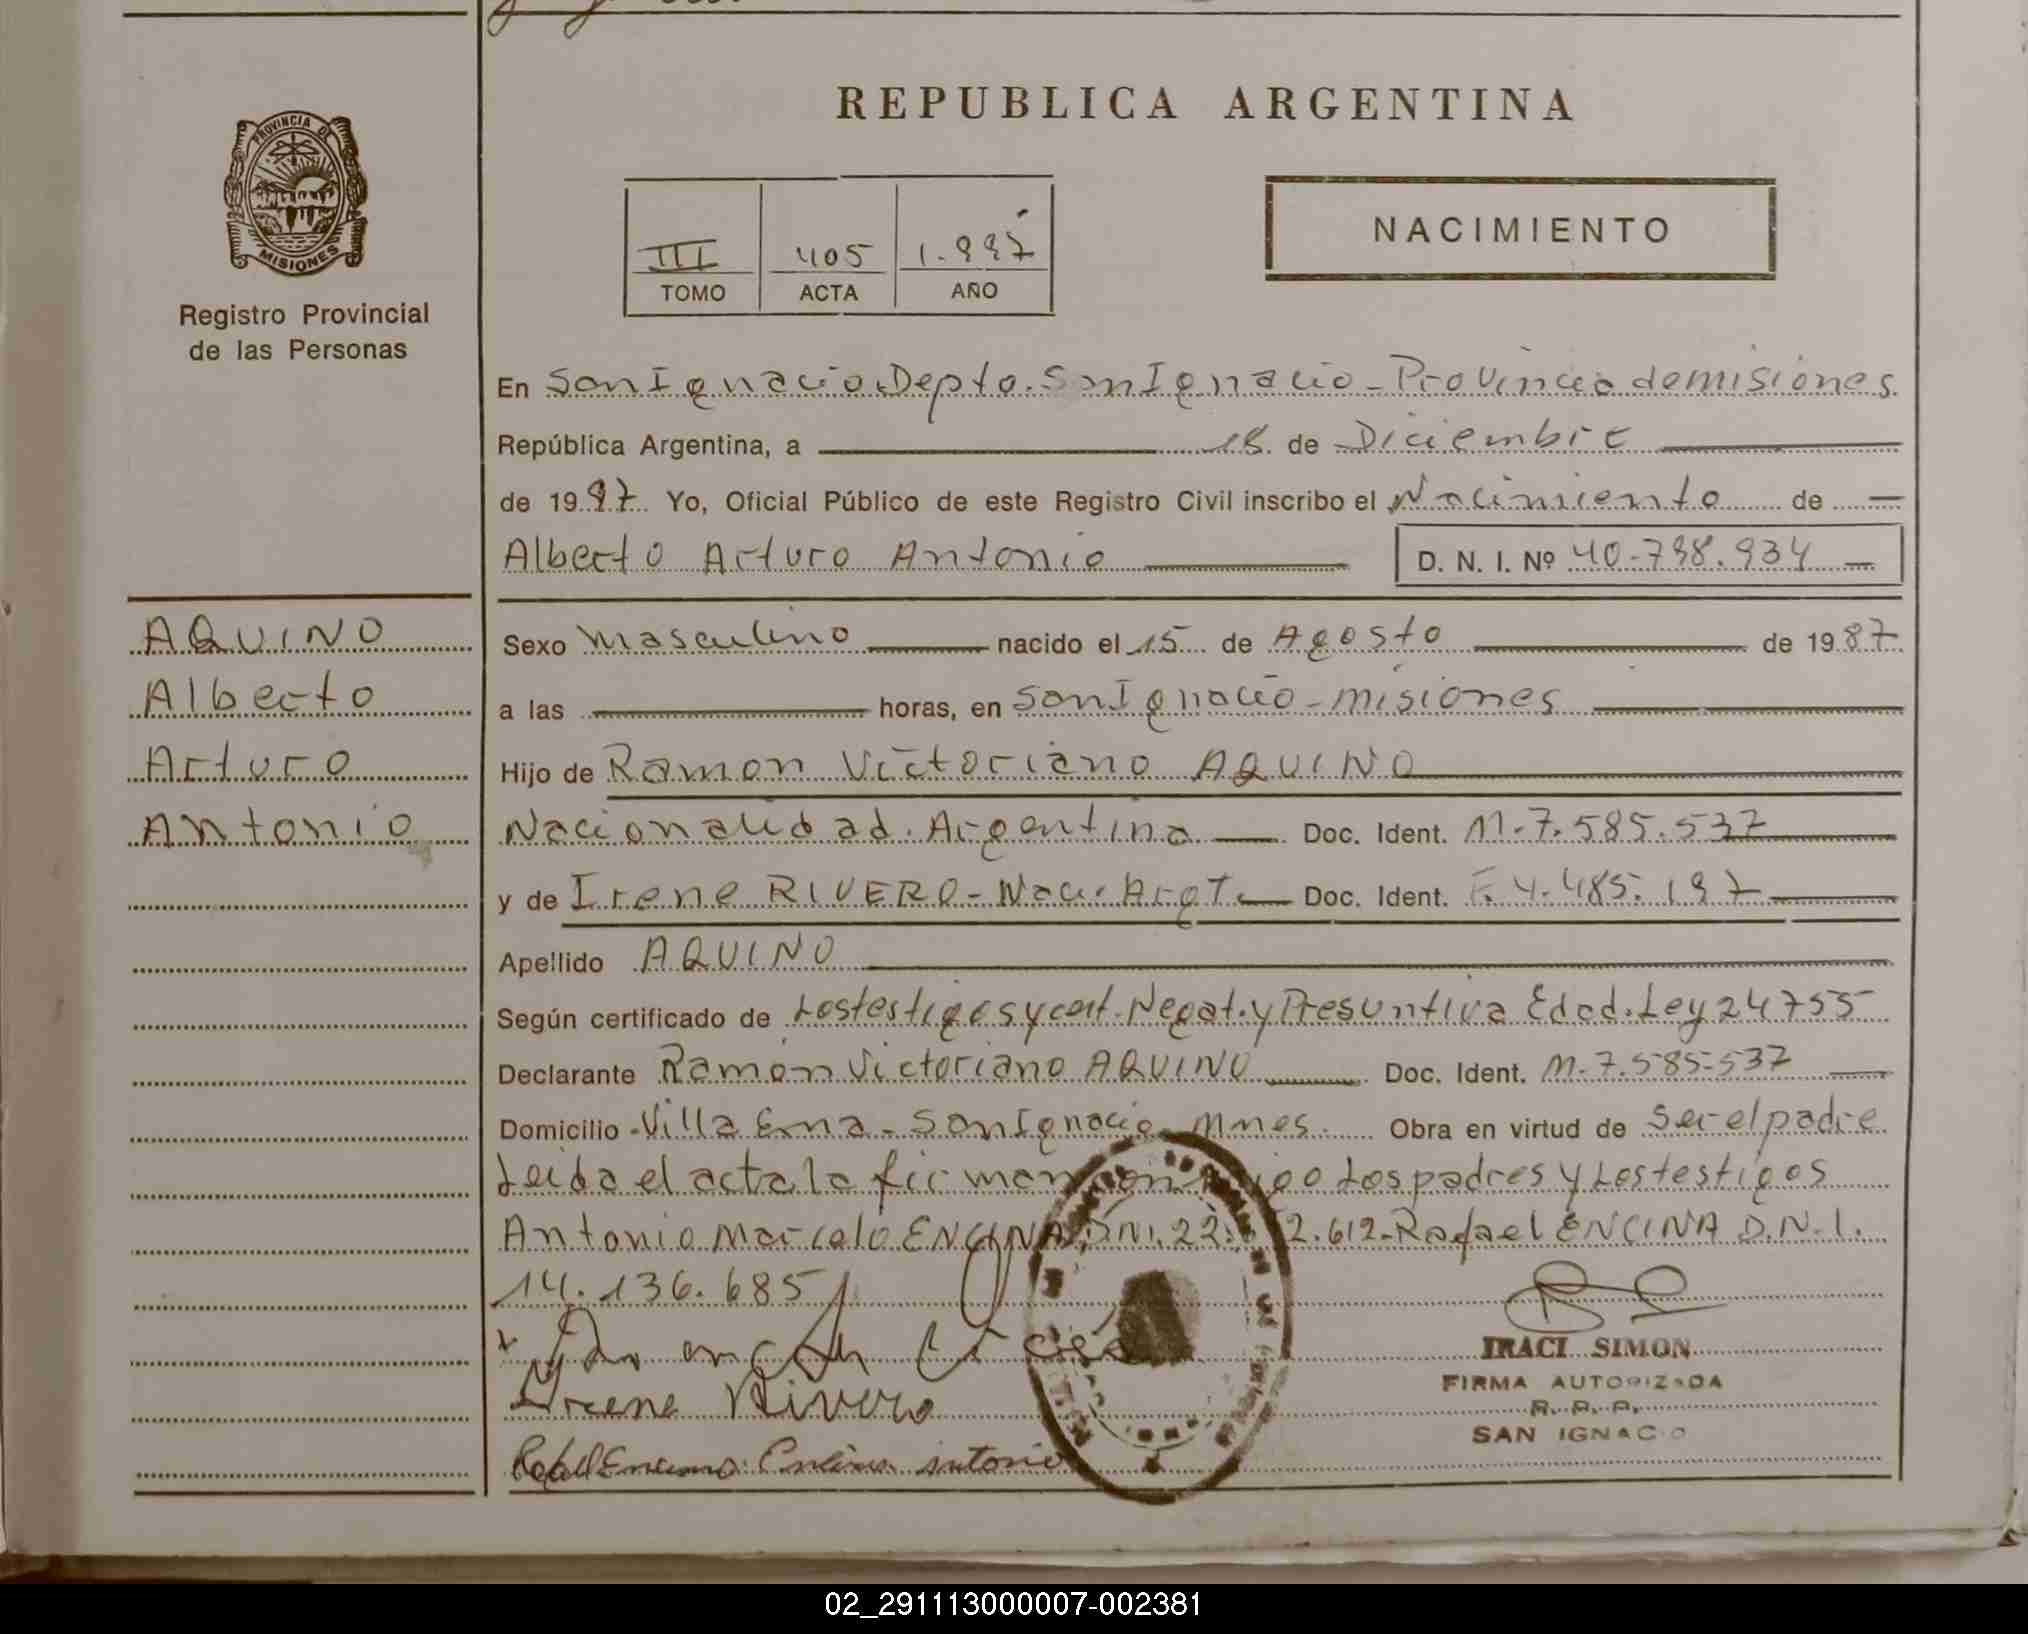 REPUBLICA ARGENTINA
PROVINCIA DE
MISIONES
Registro Provincial
de las Personas
III 405 1.997
TOMO ACTA AÑO
NACIMIENTO
En San Ignacio Depto. San Ignacio - Provincia de misiones
República Argentina, a 18 de Diciembre
de 1997 Yo, Oficial Público de este Registro Civil inscribo el Nacimiento de
Alberto Arturo Antonio D. N. I. Nº 40-798.934
AQUINO
Alberto
Arturo
Antonio
Sexo masculino nacido el 15 de Agosto de 1987
a las horas, en San Ignacio - misiones
Hijo de Ramon Victoriano AQUINO
Nacionalidad. Argentina Doc. Ident. M-7.585.537
y de Irene RIVERO - Nac. Argt. Doc. Ident. F. 4.485.197
Apellido AQUINO
Según certificado de Los testigos y cert. Negat. y Presuntiva Edad. Ley 24755
Declarante Ramón Victoriano AQUINO Doc. Ident. M-7.585-537
Domicilio Villa Ema - San Ignacio Mnes. Obra en virtud de Ser el padre
Leida el acta la firman Los padres y Los testigos
Antonio Marcelo ENCINA D.N.I. 22. 2.612 - Rafael ENCINA D.N.I.
14.136.685
Irene Rivero
IRACI SIMON
FIRMA AUTORIZADA
R. P. P.
SAN IGNACIO
Encina Antonio
02_291113000007-002381